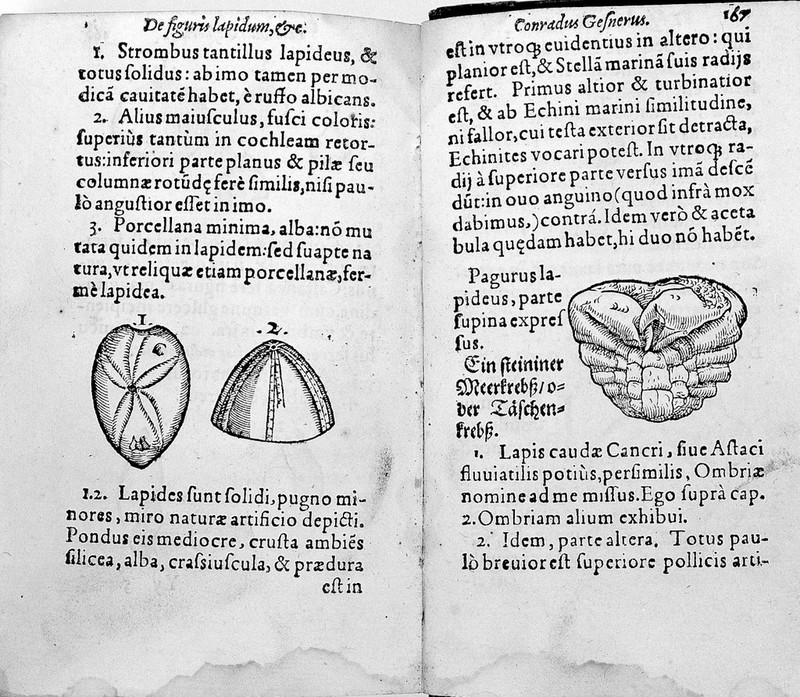 De figuris lapidum, &c.
1. Strombus tantillus lapideus, &
totus solidus: ab imo tamen per mo-
dicã cauitatẽ habet, è ruffo albicans.
2. Alius maiusculus, fusci coloris:
superiùs tantùm in cochleam retor-
tus: inferiori parte planus & pilæ seu
columnæ rotũdę ferè similis, nisi pau-
lò angustior esset in imo.
3. Porcellana minima, alba: nõ mu
tata quidem in lapidem: sed suapte na
tura, vt reliquæ etiam porcellanæ, fer-
mè lapidea.
1.
.2.
1.2. Lapides sunt solidi, pugno mi-
nores, miro naturæ artificio depicti.
Pondus eis mediocre, crusta ambiẽs
silicea, alba, crassiuscula, & prædura
est in
Conradus Gesnerus. 167
est in vtroq; euidentius in altero: qui
planior est, & Stellã marinã suis radijs
refert. Primus altior & turbinatior
est, & ab Echini marini similitudine,
ni fallor, cui testa exterior sit detracta,
Echinites vocari potest. In vtroq; ra-
dij à superiore parte versus imã descẽ
dũt: in ouo anguino (quod infrà mox
dabimus,) contrá. Idem verò & aceta
bula quędam habet, hi duo nõ habẽt.
Pagurus la-
pideus, parte
supina expres
sus.
Ein steininer
Meerkrebß/ o-
der Täschen-
krebß.
1. Lapis caudæ Cancri, siue Astaci
fluuiatilis potiùs, persimilis, Ombriæ
nomine ad me missus. Ego suprà cap.
2. Ombriam alium exhibui.
2. Idem, parte altera. Totus pau-
lò breuior est superiore pollicis arti-